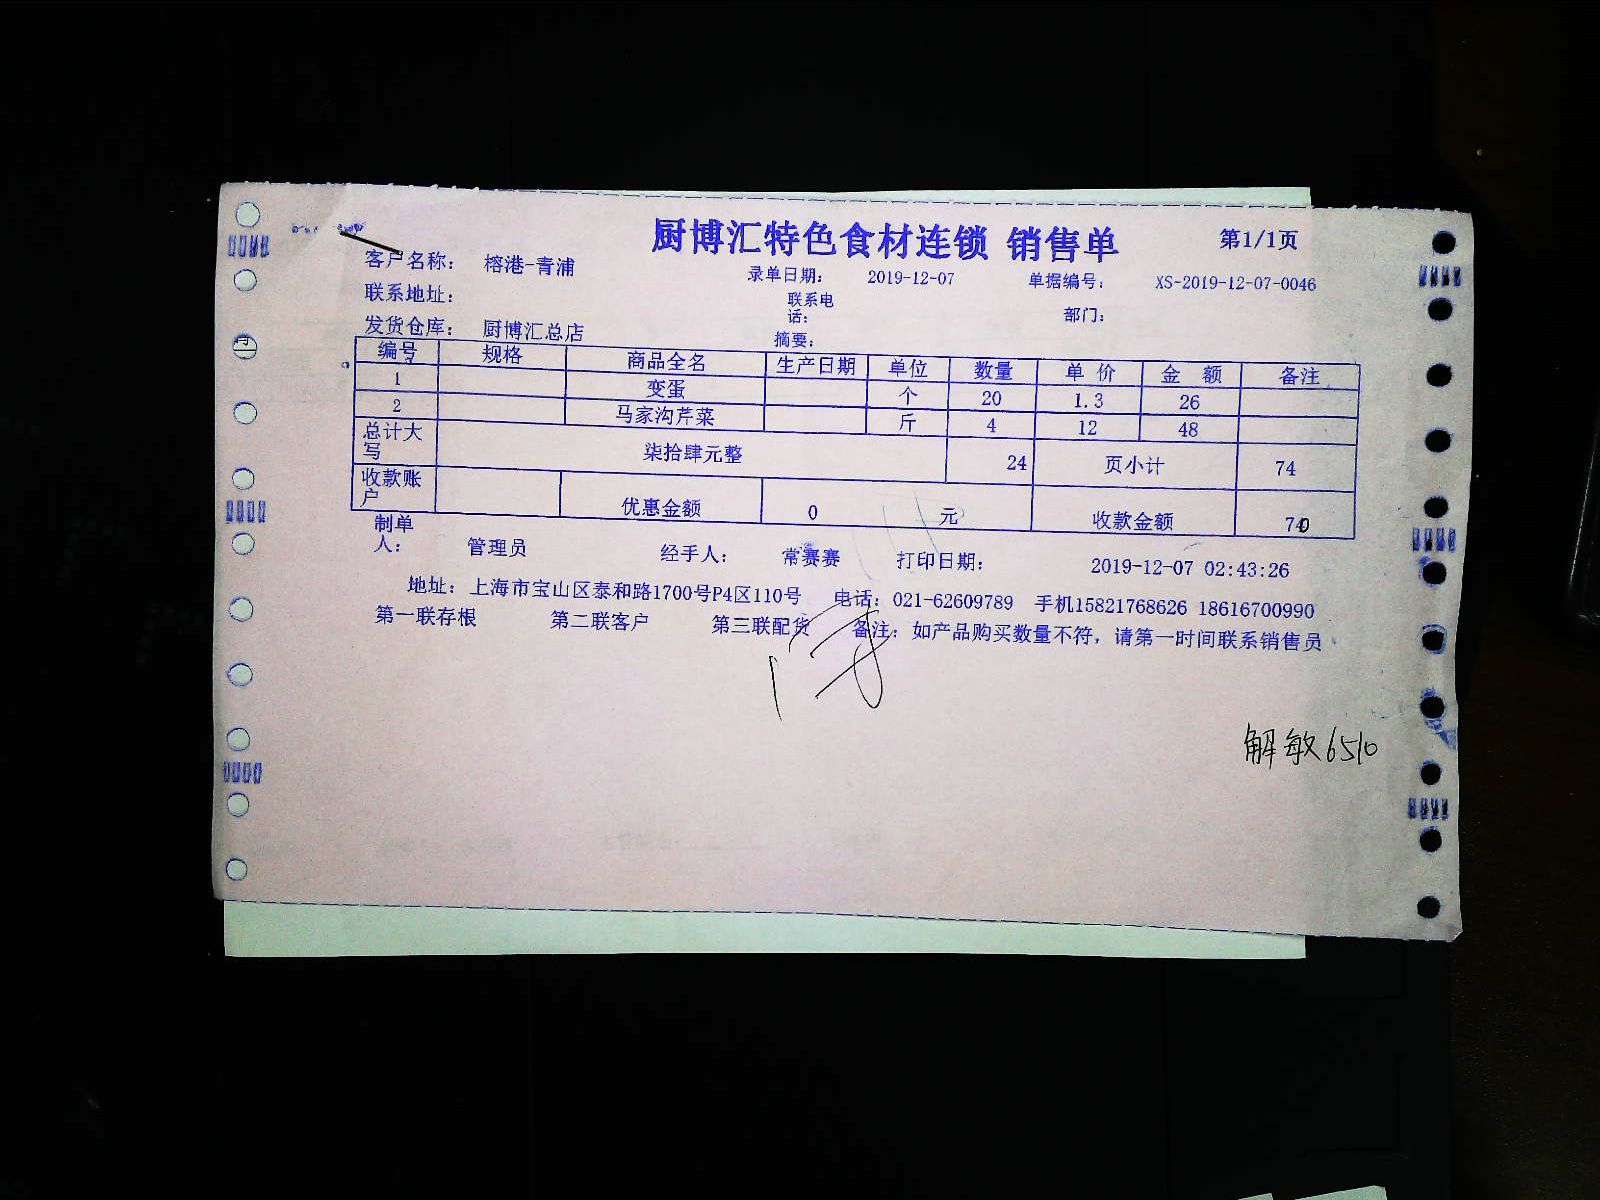 厨博汇特色食材连锁 销售单 第1/1页
客户名称： 榕港-青浦 录单日期： 2019-12-07 单据编号： XS-2019-12-07-0046
联系地址： 联系电话： 部门：
发货仓库： 厨博汇总店 摘要：
编号 规格 商品全名 生产日期 单位 数量 单 价 金 额 备注
1 变蛋 个 20 1.3 26
2 马家沟芹菜 斤 4 12 48
总计大写 柒拾肆元整 24 页小计 74
收款账户 优惠金额 0 元 收款金额 74
制单人： 管理员 经手人： 常赛赛 打印日期： 2019-12-07 02:43:26
地址：上海市宝山区泰和路1700号P4区110号 电话：021-62609789 手机15821768626 18616700990
第一联存根 第二联客户 第三联配货 备注：如产品购买数量不符，请第一时间联系销售员
解敏6510